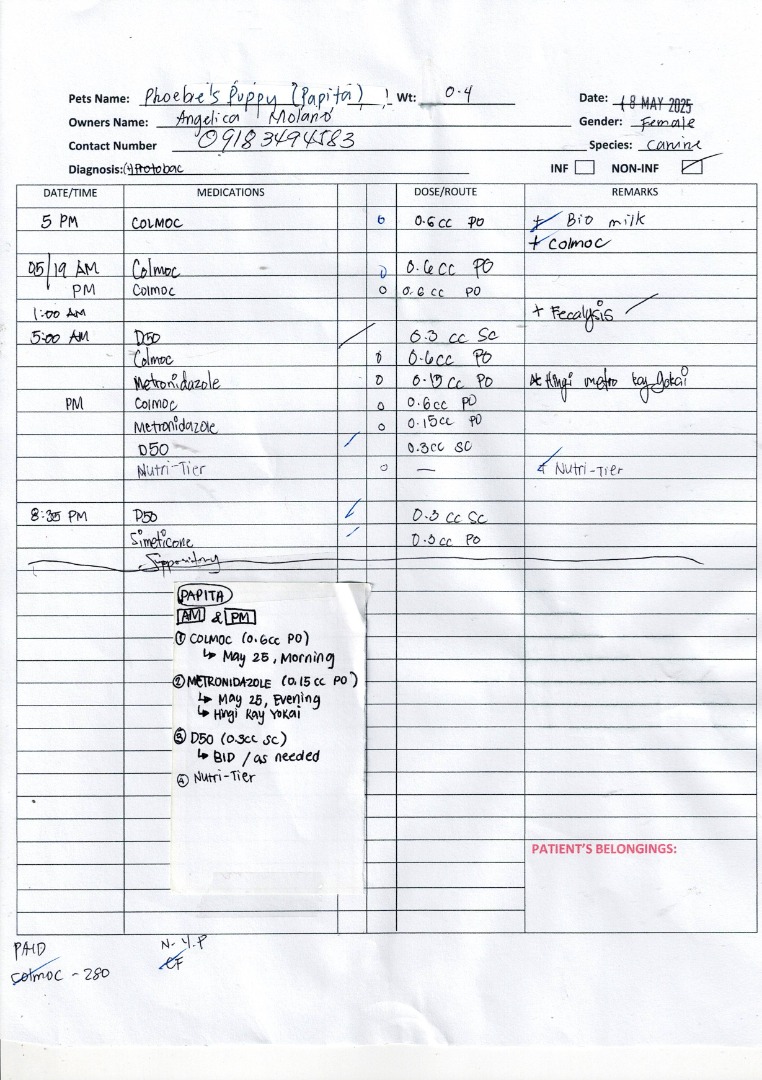 Pets Name: Phoebe's Puppy (Papita) Wt: 0.4 Date: 18 MAY 2025
Owners Name: Angelica Molano Gender: Female
Contact Number 09183494583 Species: Canine
Diagnosis: (+) Protobac INF NON-INF
DATE/TIME MEDICATIONS DOSE/ROUTE REMARKS
5 PM COLMOC 0.6cc PO + Bio milk
+ Colmoc
05/19 AM Colmoc 0.6cc PO
PM Colmoc 0.6cc PO
1:00 AM + Fecalysis
5:00 AM D50 0.3 cc SC
Colmoc 0.6cc PO
Metronidazole 0.15 cc PO Hingi metro kay Yokai
PM Colmoc 0.6cc PO
Metronidazole 0.15cc PO
D50 0.3cc SC
Nutri-Tier — + Nutri-Tier
8:35 PM D50 0.3 cc SC
Simeticone 0.3 cc PO
Suppository
PAPITA
AM & PM
① COLMOC (0.6cc PO)
↳ May 25, Morning
② METRONIDAZOLE (0.15 cc PO)
↳ May 25, Evening
↳ Hingi kay Yokai
③ D50 (0.3cc SC)
↳ BID / as needed
④ Nutri-Tier
PATIENT'S BELONGINGS:
PAID N.Y.P
colmoc - 280 CF